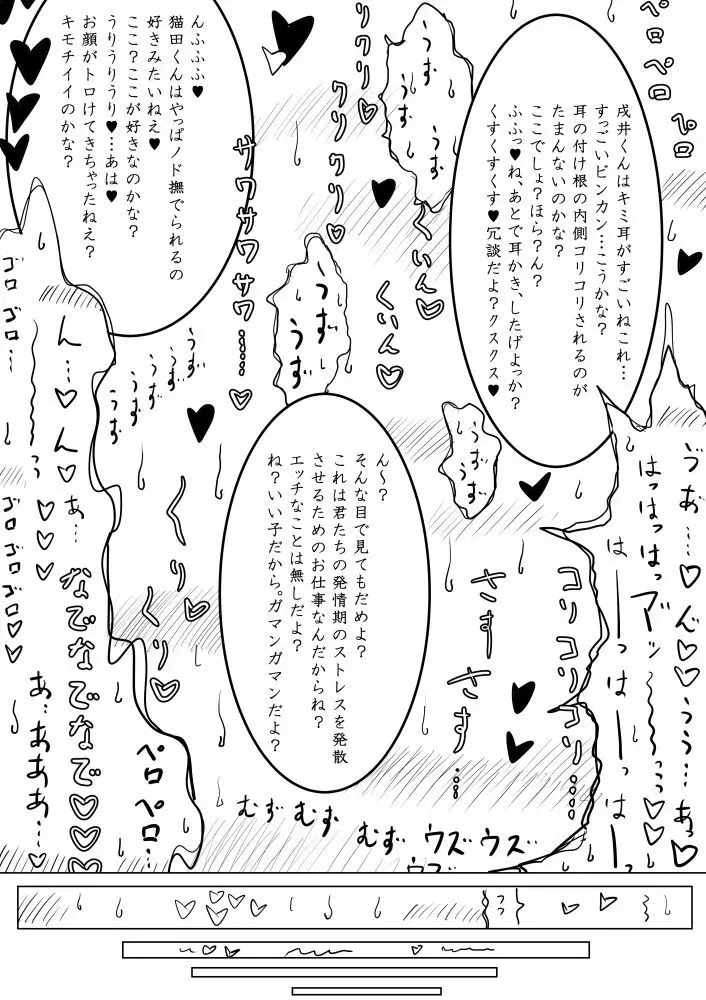 戌井くんはキミ耳がすごいねこれ…
すっごいビンカン…こうかな?
耳の付け根の内側コリコリされるのが
たまんないのかな?
ここでしょ?ほら?ん?
ふふっ♥ね、あとで耳かき、したげよっか?
くすくすくす♥冗談だよ?クスクス♥
んふふふ♥
猫田くんはやっぱノド撫でられるの
好きみたいねえ♥
ここ?ここが好きなのかな?
うりうりうり♥…あは♥
お顔がトロけてきちゃったねえ?
キモチイイのかな?
ん〜?
そんな目で見てもだめよ?
これは君たちの発情期のストレスを発散
させるためのお仕事なんだからね?
エッチなことは無しだよ?
ね?いい子だから。ガマンガマンだよ?
ペロペロ
ペロ
うず
うず
クリクリ♡
クリクリ♡
くいん♡
くいん♡
サワサワサワサワ……♡
うず
うず
うず
うず
うず
うず
うず
うず
ゴロゴロ…
ゴロゴロゴロ♡♡
ん…♡ん♡あ…
〜〜っ♡♡♡
くりくり♡
なでなでなでなで♡♡♡
あ…あああ…
ペロペロ…
さすさす……
コリコリコリ……
はっはっはっ
はーっはーっはー
うぅ…あっ♡
むずむず
むず
ウズウズ
ウズ
っっ